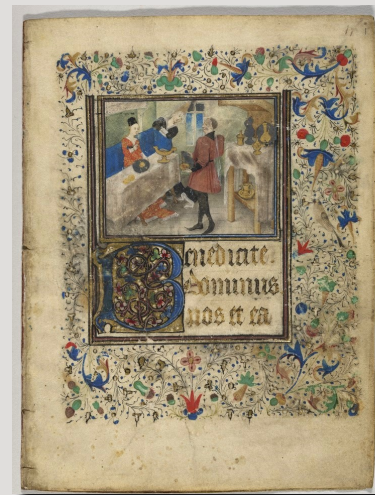 Benedicite.
Dominus
nos et ea